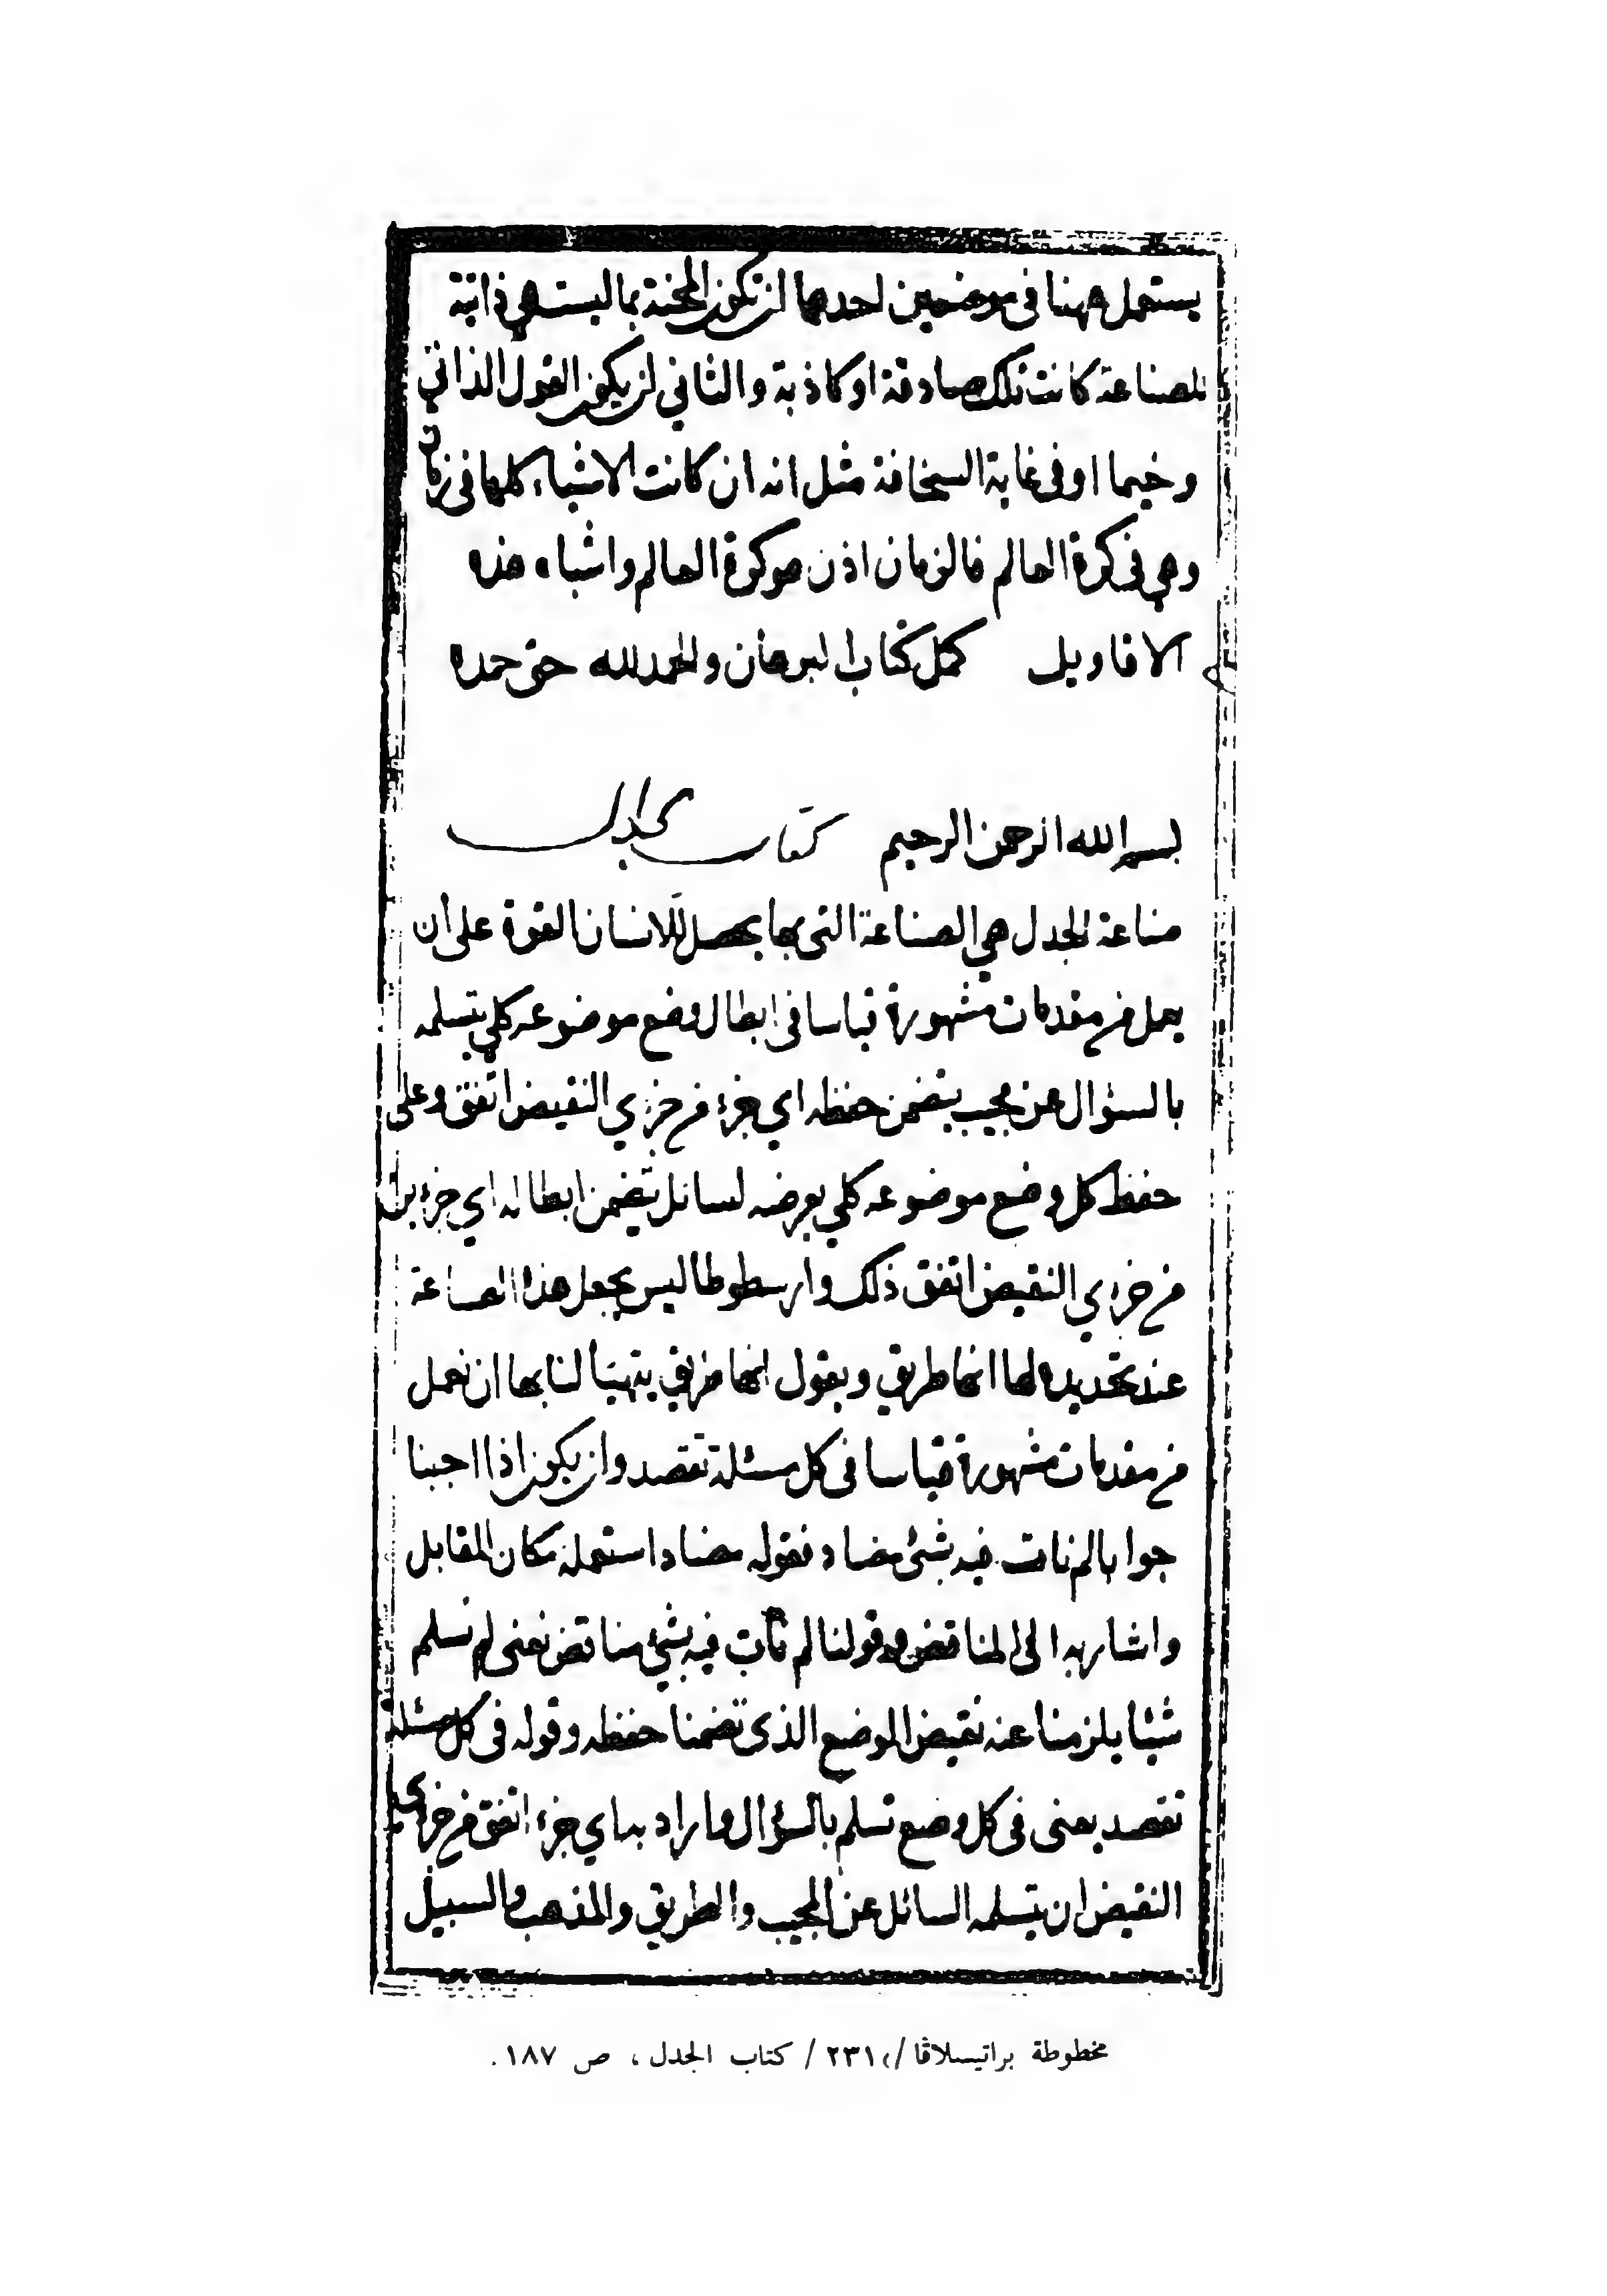 يستعمل ههنا في موضعين احدهما ان تكون المحنة بما ليست هي ذاتية
للصناعة كانت تلك صادقة او كاذبة والثاني ان يكون القول الذاتي
وخيما او في غاية السخافة مثل انه ان كانت الاشياء كلها في زمان
وهي في كرة العالم فالزمان اذن هو كرة العالم واشباه هذه
الاقاويل كمل كتاب البرهان والحمد لله حق حمده
بسم الله الرحمن الرحيم كتاب الجدل
صناعة الجدل هي الصناعة التي بها يحصل للانسان القوة على ان
يعمل من مقدمات مشهورة قياسا في ابطال وضع موضوعه كلي يتسلمه
بالسؤال عن مجيب يتضمن حفظه اي جزء من جزءي النقيض اتفق وعلى
حفظ كل وضع موضوعه كلي يعرضه لسائل يتضمن ابطاله اي جزء
من جزءي النقيض اتفق ذلك وارسطوطاليس يجعل هذا الصناعة
عند تحديده لها انها طريق ويقول انها طريق يتهيأ لنا بها ان نعمل
من مقدمات مشهورة قياسا في كل مسئلة تقصد وان يكون اذا اجبنا
جوابا لم نات فيه بشئ مضاد فقوله مضاد استعمله مكان المقابل
واشار به الى المناقض وقولنا لم نأت فيه بشئ مناقض نعني لم نسلم
شيئا يلزمنا عنه نقيض الموضع الذي تضمنا حفظه وقوله في كل مسئلة
تقصد يعني في كل وضع تسلم بالسؤال واراد به اي جزء اتفق من جزءي
النقيض ان يتسلمه السائل عن المجيب والطريق والمذهب والسبيل
مخطوطة براتيسلاڤا /٢٣١/ كتاب الجدل ، ص ١٨٧.